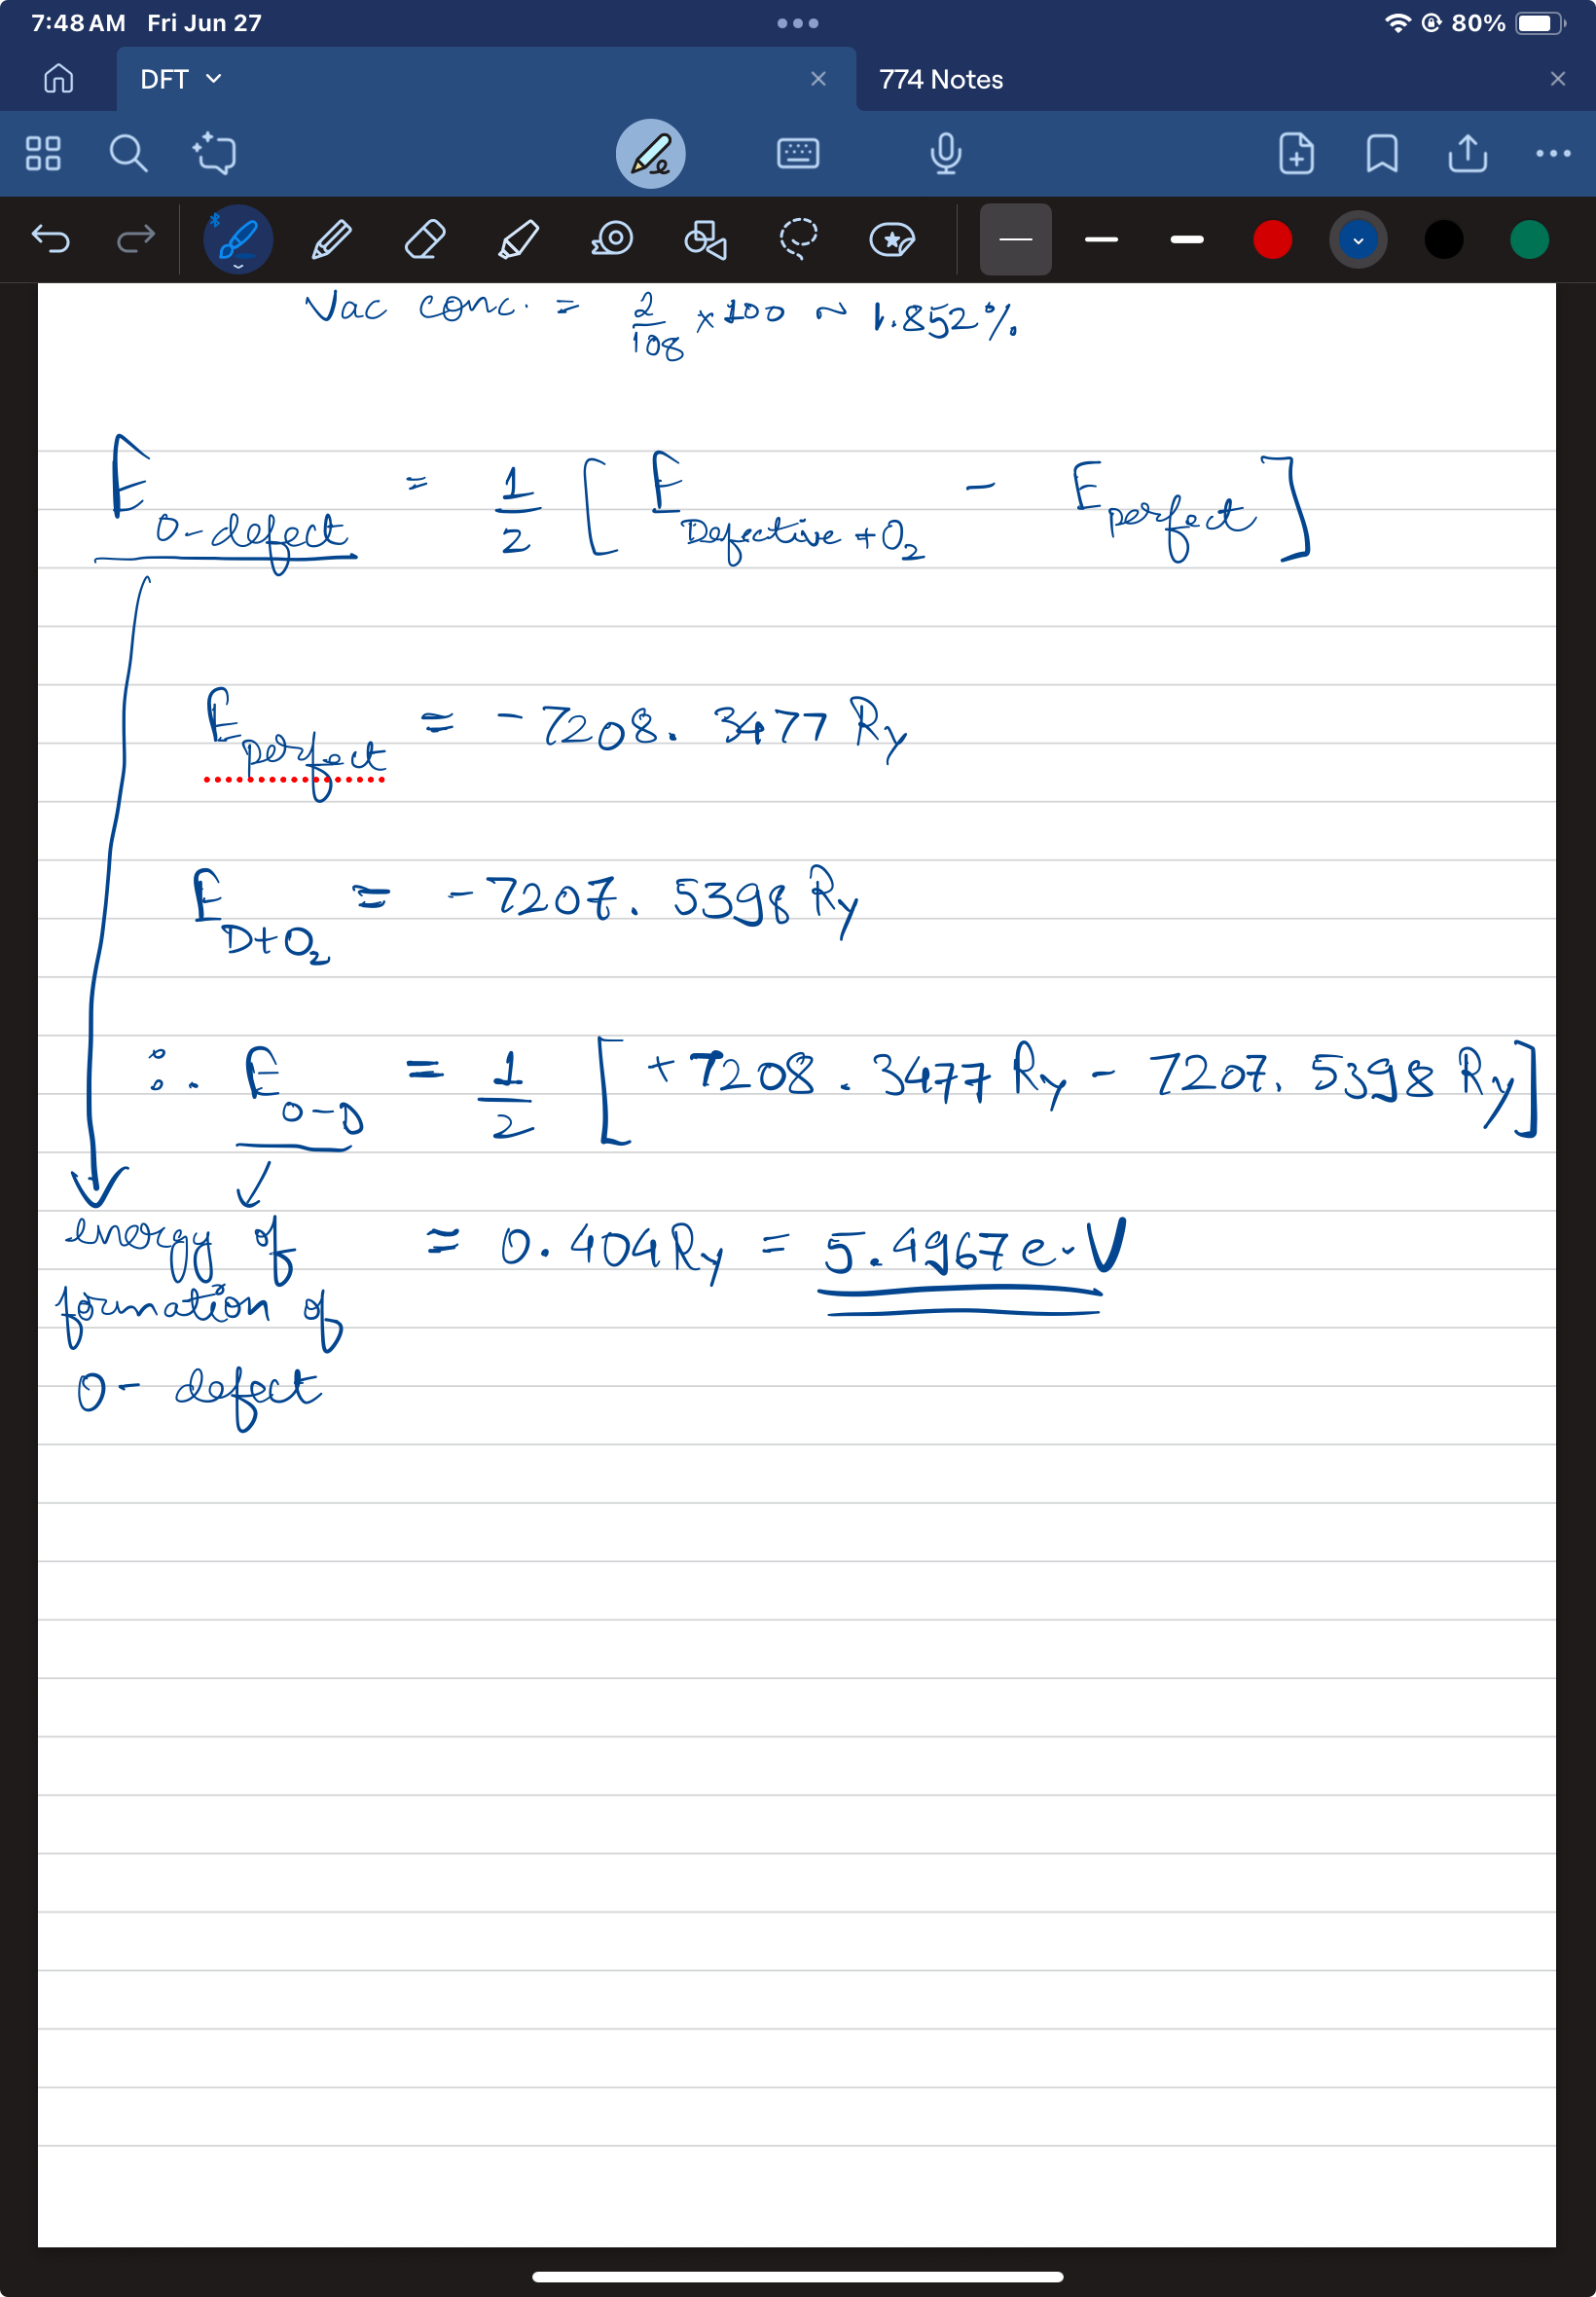 7:48 AM Fri Jun 27 80%
DFT 774 Notes
Vac conc. = 2/108 × 100 ~ 1.852%
E O-defect = 1/2 [ E Defective + O₂ - E perfect ]
E perfect = - 7208.3477 Ry
E D+O₂ = - 7207.5398 Ry
∴ E O-D = 1/2 [ +7208.3477 Ry - 7207.5398 Ry ]
= 0.404 Ry = 5.4967 e.V
energy of
formation of
O- defect